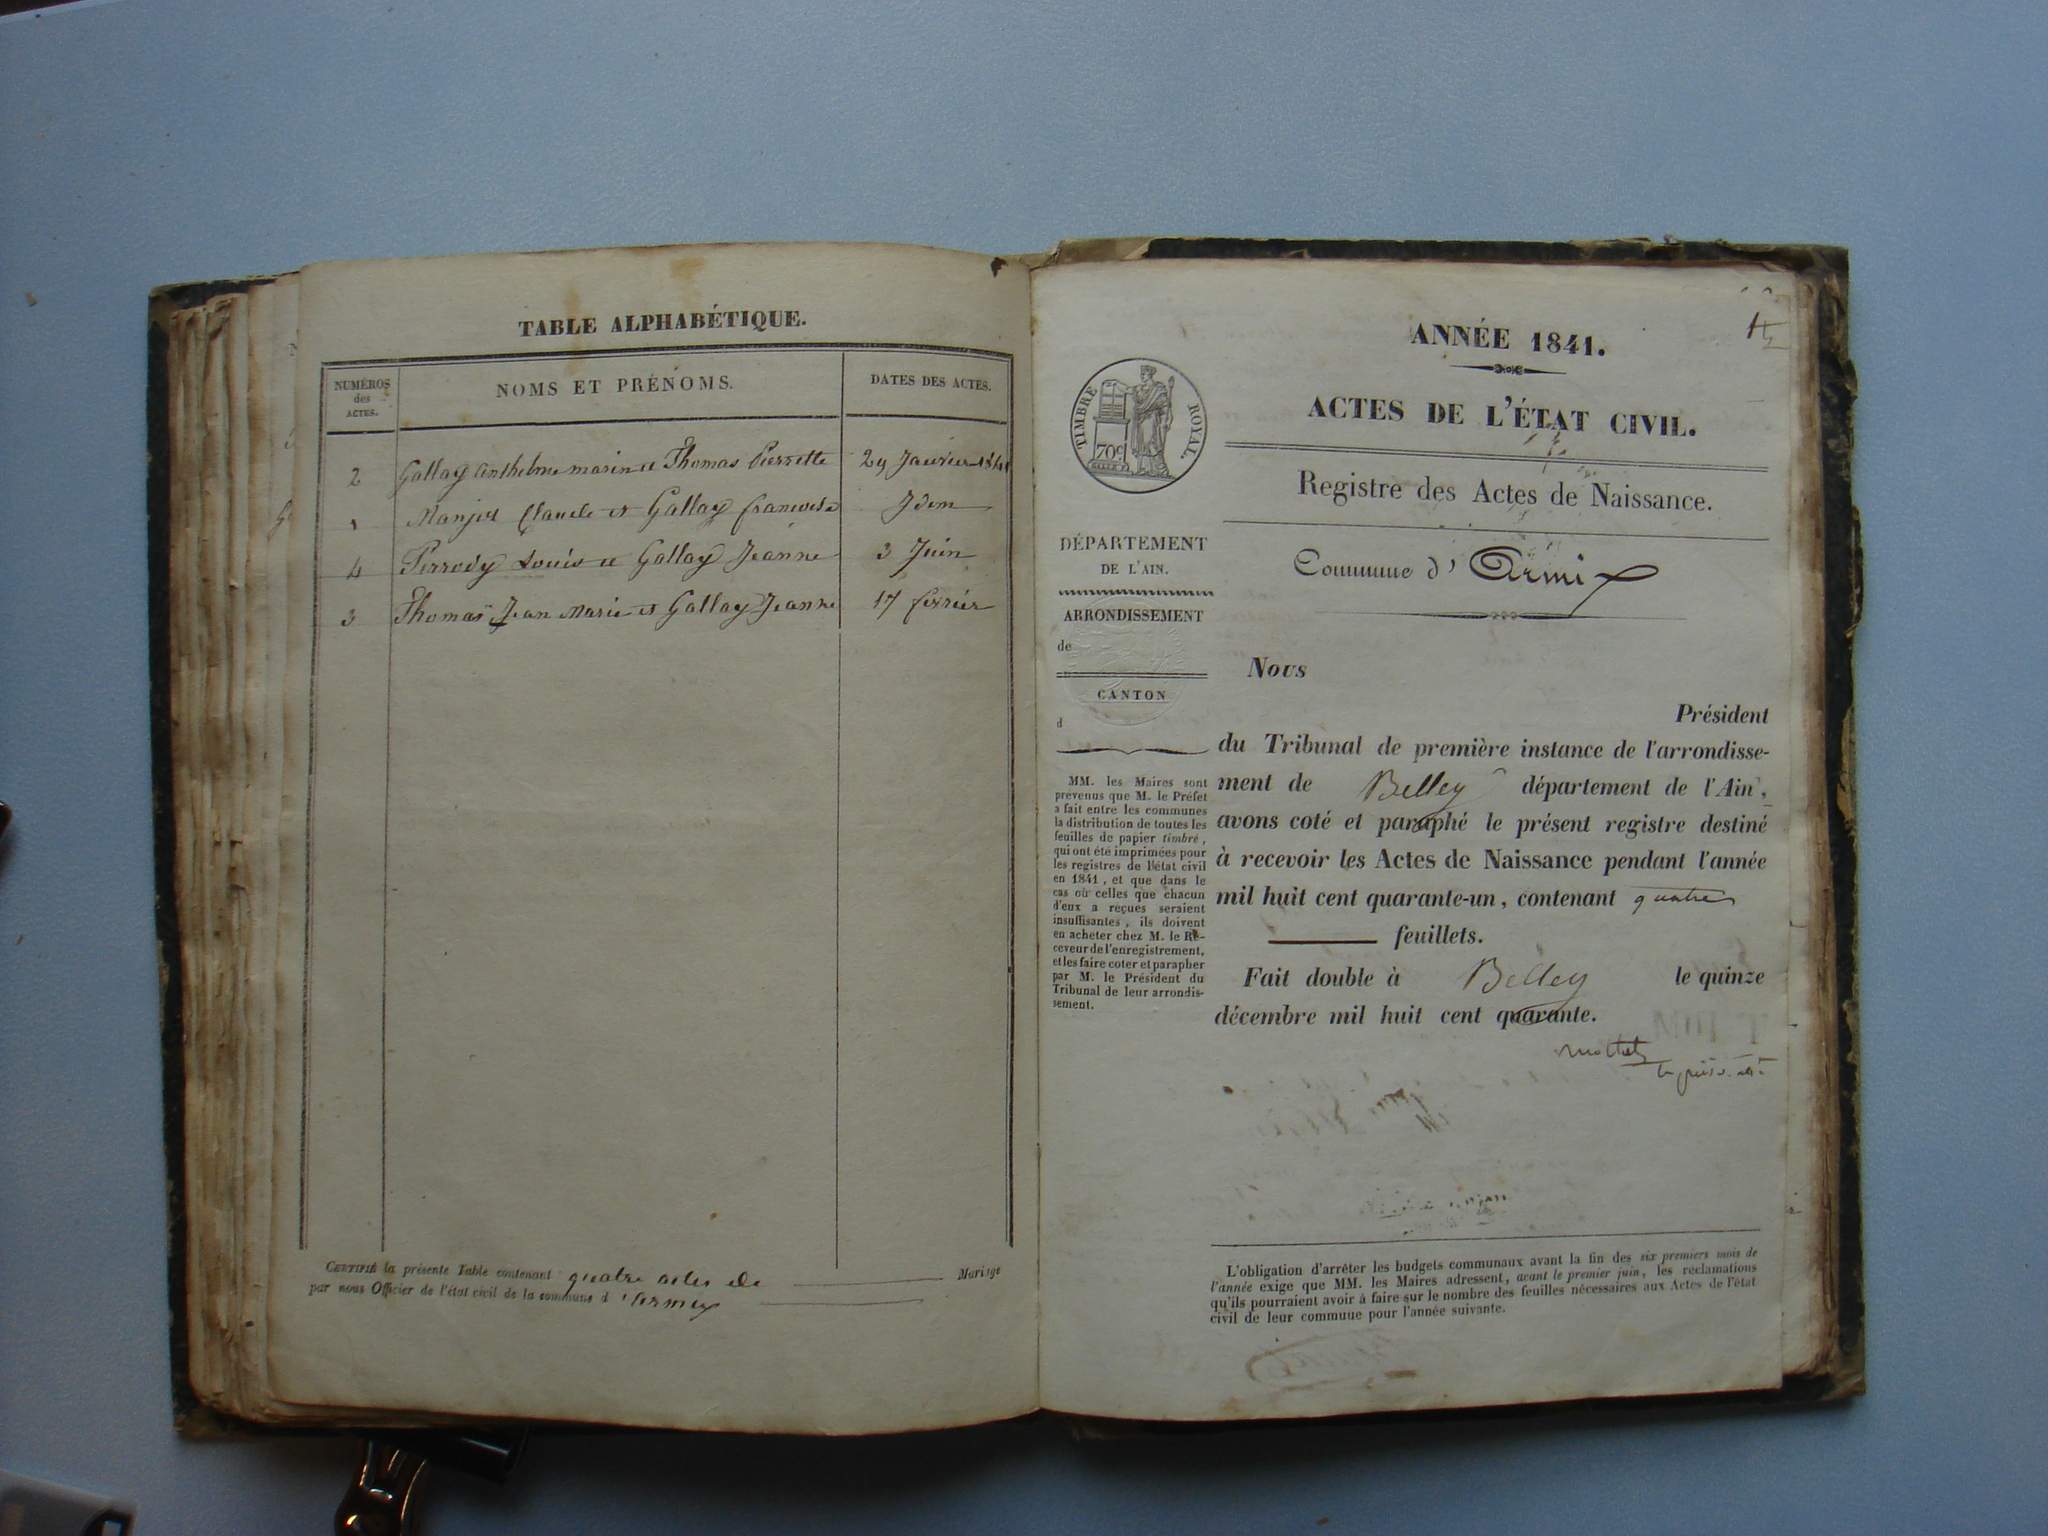 TABLE ALPHABÉTIQUE.
NUMÉROS
des
ACTES.
NOMS ET PRÉNOMS.
DATES DES ACTES.
2 Gallay Anthelme marin et Thomas Pierrette 29 Janvier 1841
1 Manjot Claude et Gallay francoise Idem
4 Perrody Louis et Gallay Jeanne 3 Juin
3 Thomas Jean Marie et Gallay Jeanne 17 fevrier
CERTIFIÉ la présente Table contenant quatre actes de Mariage
par nous Officier de l'état civil de la commune d'Armix
ANNÉE 1841.
ACTES DE L'ÉTAT CIVIL.
TIMBRE ROYAL.
70c
Registre des Actes de Naissance.
Commune d'Armix
DÉPARTEMENT
DE L'AIN.
ARRONDISSEMENT
de
CANTON
d
MM. les Maires sont
prévenus que M. le Préfet
a fait entre les communes
la distribution de toutes les
feuilles de papier timbré,
qui ont été imprimées pour
les registres de l'état civil
en 1841, et que dans le
cas où celles que chacun
d'eux a reçues seraient
insuffisantes, ils doivent
en acheter chez M. le Re-
ceveur de l'enregistrement,
et les faire coter et parapher
par M. le Président du
Tribunal de leur arrondis-
sement.
Nous
Président
du Tribunal de première instance de l'arrondisse-
ment de Belley département de l'Ain,
avons coté et paraphé le présent registre destiné
à recevoir les Actes de Naissance pendant l'année
mil huit cent quarante-un, contenant quatre
feuillets.
Fait double à Belley le quinze
décembre mil huit cent quarante.
L'obligation d'arrêter les budgets communaux avant la fin des six premiers mois de
l'année exige que MM. les Maires adressent, avant le premier juin, les réclamations
qu'ils pourraient avoir à faire sur le nombre des feuilles nécessaires aux Actes de l'état
civil de leur commune pour l'année suivante.